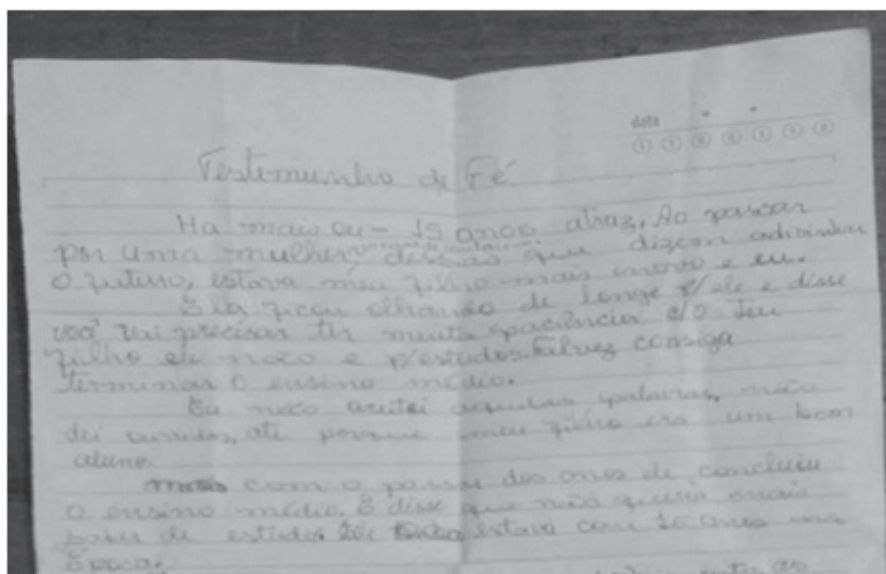 data
Testemunho de Fé
Ha mais ou - 15 anos atraz, Ao passar
por uma mulher, dessas que dizem adivinhar
o futuro, estava meu filho mais novo e eu.
Ela ficou olhando de longe p/ ele e disse
você vai precisar ter muita paciência c/o seu
filho ele não e p/estudos. Talvez consiga
terminar o ensino médio.
Eu não aceitei aquelas palavras, não
dei ouvidos, até porque meu filho era um bom
aluno.
mais com o passar dos anos ele concluiu
o ensino médio. E disse que não queria mais
saber de estudos estava com 16 anos na
Época.
as